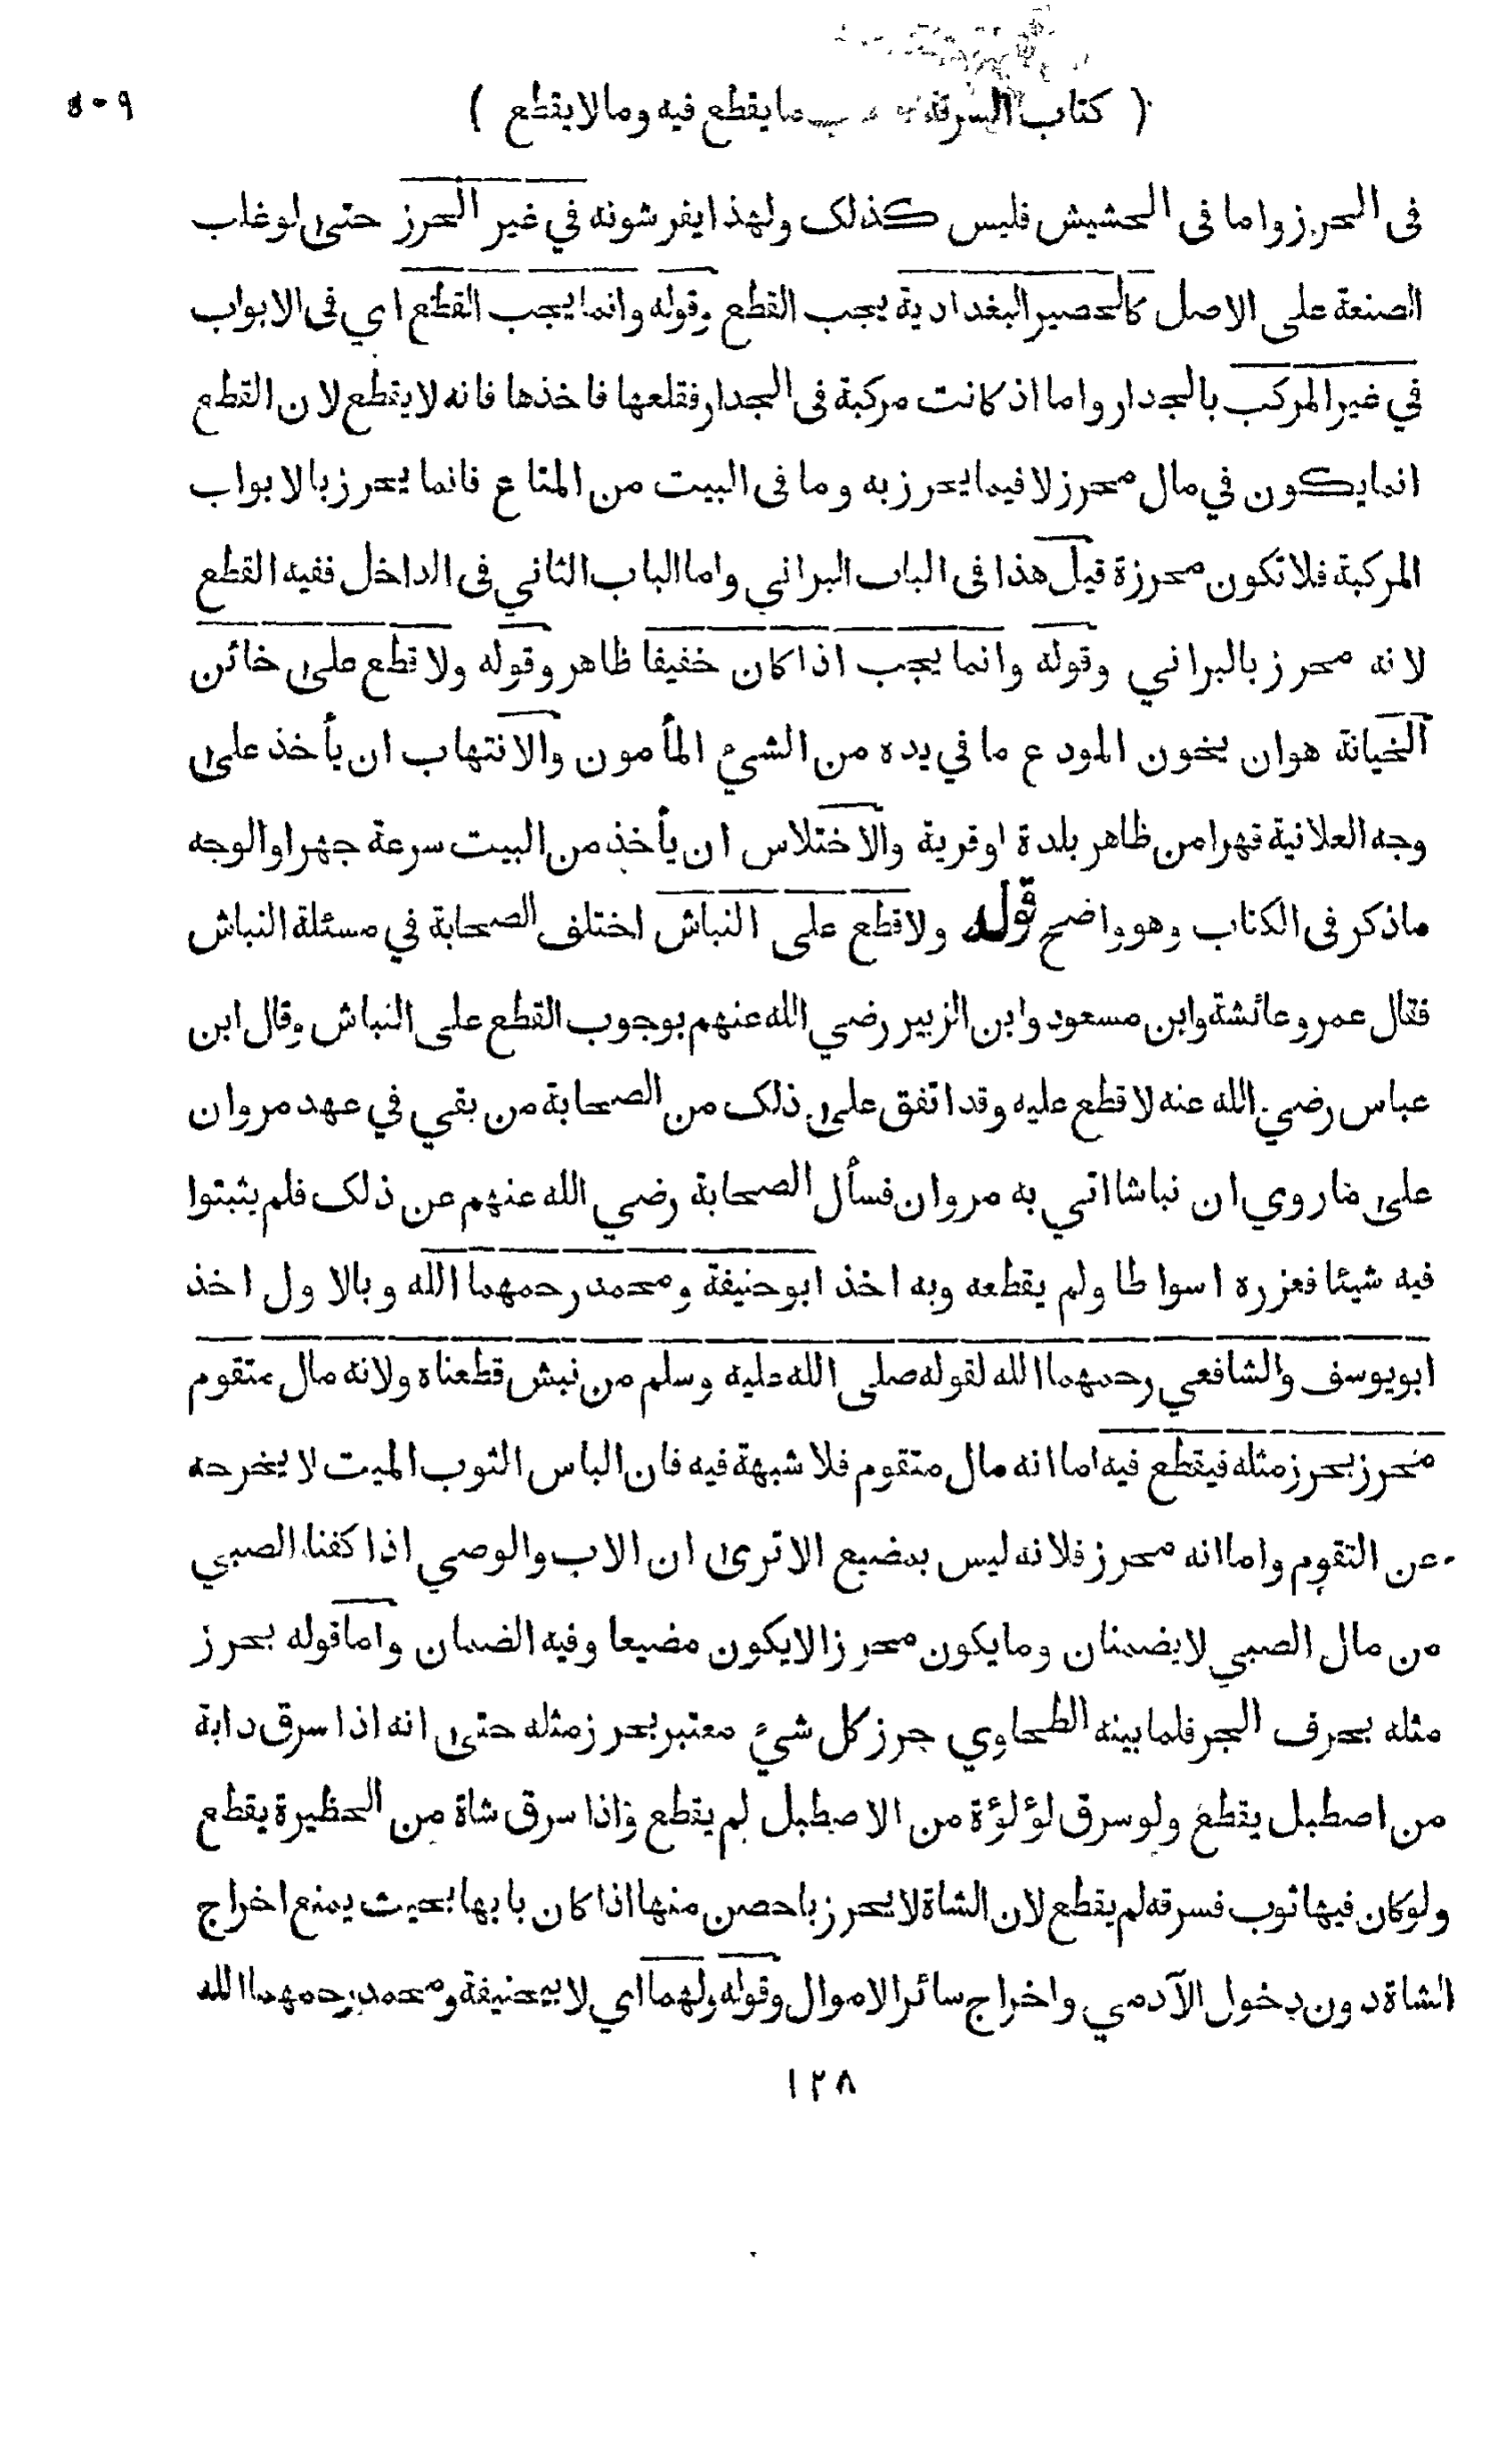 ( كتاب السرقة ما يقطع فيه وما لا يقطع ) ٥٠٩
فى الحرز واما فى الحشيش فليس كذلك ولهذا يفرشونه في غير الحرز حتى لو غلب
الصنعة على الاصل كالحصير البغدادية يجب القطع وقوله وانما يجب القطع اي فى الابواب
في غير المركب بالجدار واما اذ كانت مركبة فى الجدار فقلعها فاخذها فانه لا يقطع لان القطع
انما يكون في مال محرز لا فيما يحرز به وما فى البيت من المتاع فانما يحرز بالابواب
المركبة فلا تكون محرزة قيل هذا فى الباب البراني واما الباب الثاني فى الداخل ففيه القطع
لانه محرز بالبراني وقوله وانما يجب اذا كان خفيفا ظاهر وقوله ولا قطع على خائن
الخيانة هو ان يخون المودع ما في يده من الشيء المأمون والانتهاب ان يأخذ على
وجه العلانية قهرا من ظاهر بلدة او قرية والاختلاس ان يأخذ من البيت سرعة جهرا والوجه
ما ذكر فى الكتاب وهو واضح قوله ولا قطع على النباش اختلف الصحابة في مسئلة النباش
فقال عمر وعائشة وابن مسعود وابن الزبير رضي الله عنهم بوجوب القطع على النباش وقال ابن
عباس رضي الله عنه لا قطع عليه وقد اتفق على ذلك من الصحابة من بقي في عهد مروان
على ما روي ان نباشا اتي به مروان فسأل الصحابة رضي الله عنهم عن ذلك فلم يثبتوا
فيه شيئا فعزره اسواطا ولم يقطعه وبه اخذ ابو حنيفة ومحمد رحمهما الله وبالاول اخذ
ابو يوسف والشافعي رحمهما الله لقوله صلى الله عليه وسلم من نبش قطعناه ولانه مال متقوم
محرز بحرز مثله فيقطع فيه اما انه مال متقوم فلا شبهة فيه فان الباس الثوب الميت لا يخرجه
عن التقوم واما انه محرز فلانه ليس بمضيع الا ترى ان الاب والوصي اذا كفنا الصبي
من مال الصبي لا يضمنان وما يكون محرزا لا يكون مضيعا وفيه الضمان واما قوله بحرز
مثله بحرف الجر فلما بينه الطحاوي حرز كل شيء معتبر بحرز مثله حتى انه اذا سرق دابة
من اصطبل يقطع ولو سرق لؤلؤة من الاصطبل لم يقطع واذا سرق شاة من الحظيرة يقطع
ولو كان فيها ثوب فسرقه لم يقطع لان الشاة لا يحرز باحصن منها اذا كان بابها بحيث يمنع اخراج
الشاة دون دخول الآدمي واخراج سائر الاموال وقوله ولهما اي لابيحنيفة ومحمد رحمهما الله
١٢٨